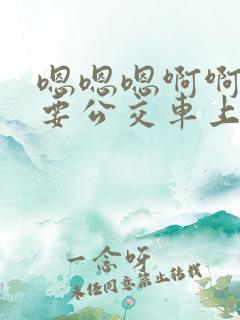 嗯嗯嗯啊啊
要公交車上
一念呀
未经同意禁止转载